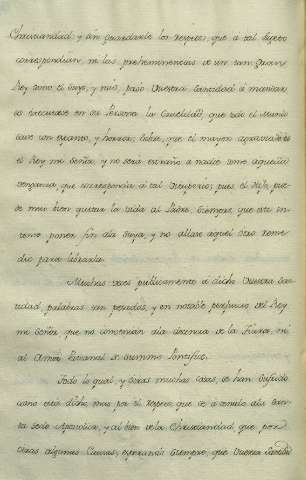 Christiandad, y sin guardarle los respetos, que a tal sujeto
correspondian, ni las preheminencias de un tan gran
Rey como el suyo, y mio, paso Vuestra Santidad a mandar
se executase en su Persona la crueldad, que todo el Mundo
save con espanto, y horror; sobre, que el mayor agraviado es
el Rey mi Señor, y no sera estraño a nadie tome aquella
venganza, que corresponda a tal vituperio; pues el Hijo, pue-
de mui bien quitar la vida al Padre, siempre que este in-
tente poner fin á la suya, y no allase aquel otro reme-
dio para librarla.
Muchas veces publicamente a dicho Vuestra San-
tidad, palabras pesadas, y en notable perjuicio del Rey
mi Señor, que no convenian a la decencia de la Tiara, ni
al Amor Paternal de Summo Pontifice.
Todo lo qual, y otras muchas cosas, se han sufrido
como esta dicho, mas por el respeto que se a tenido a la San-
ta Sede Apostolica, y al bien de la Christiandad, que por
otras algunas Causas, esperando siempre, que Vuestra Santidad